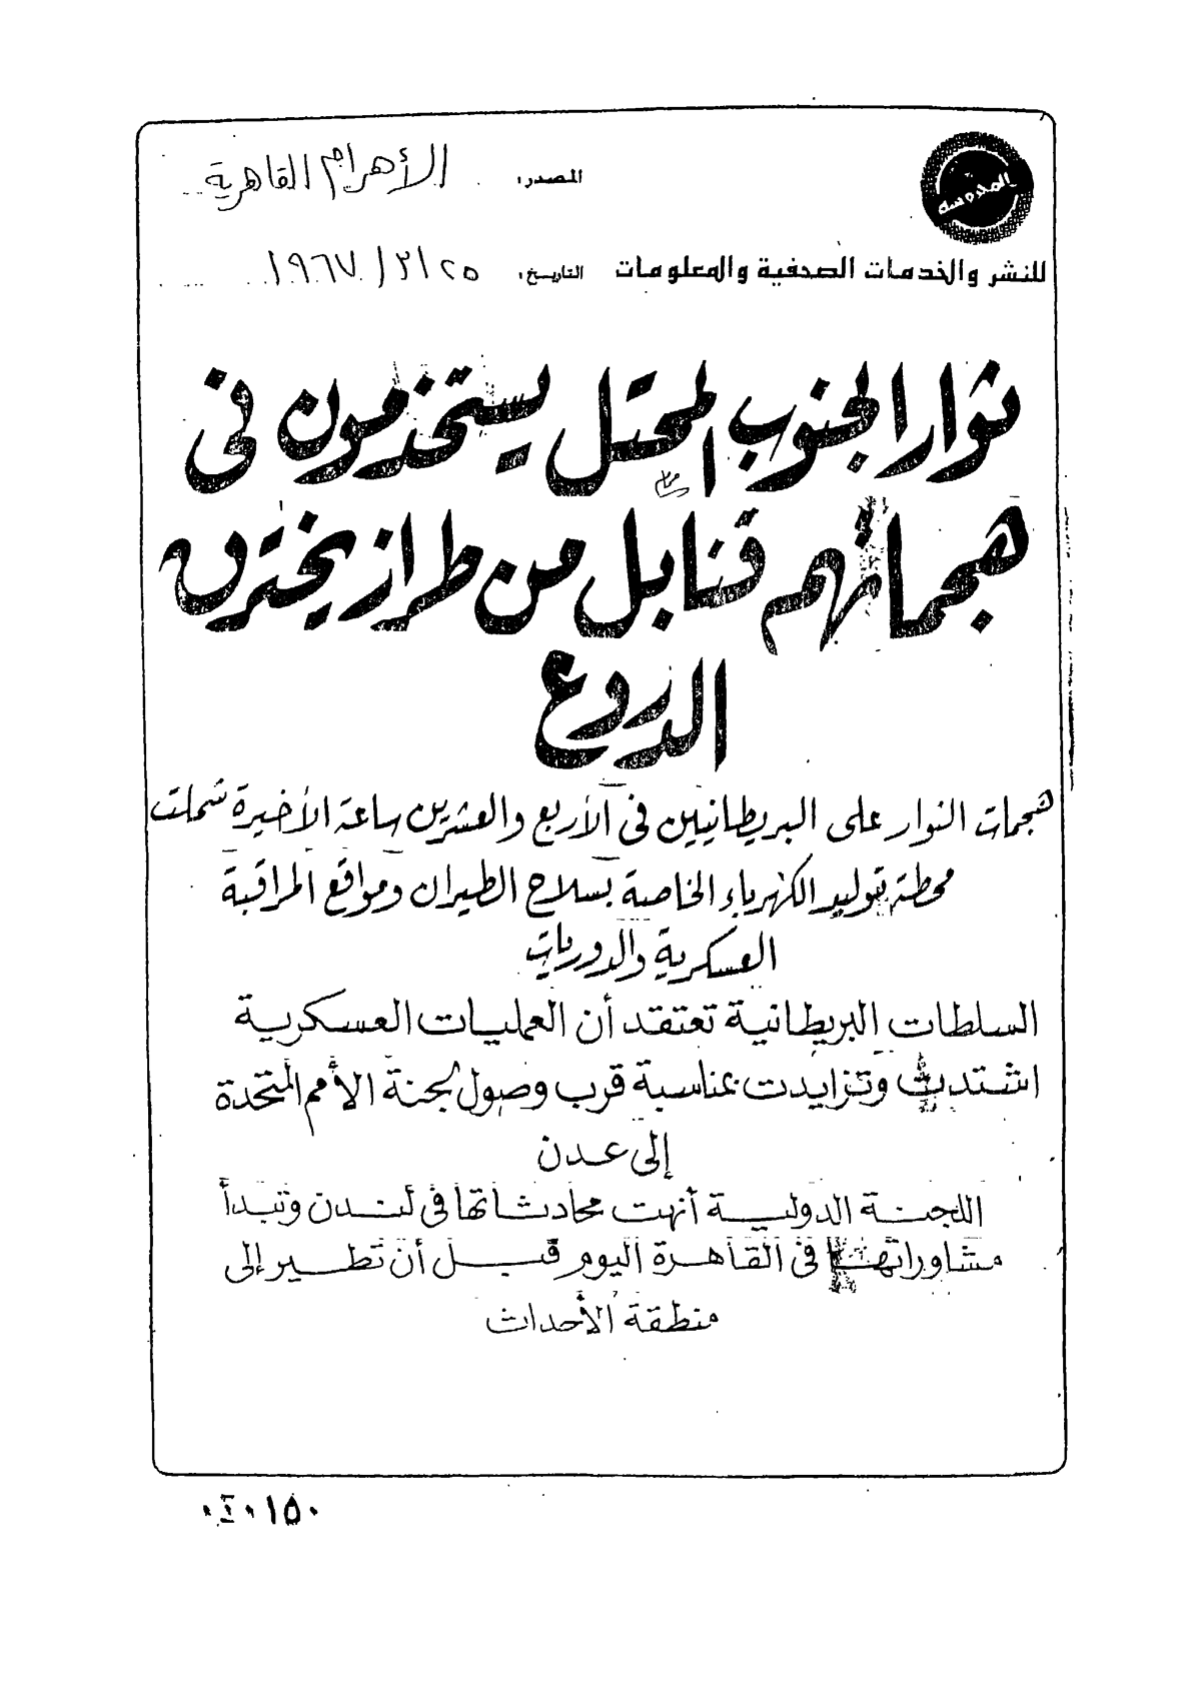 المحروسة
المصدر: الأهرام القاهرية
للنشر والخدمات الصحفية والمعلومات التاريخ: ٢٥/٣/١٩٦٧
ثوار الجنوب المحتل يستخدمون فى
هجماتهم قنابل من طراز يخترق
الدروع
هجمات الثوار على البريطانيين فى الأربع والعشرين ساعة الأخيرة شملت
محطة توليد الكهرباء الخاصة بسلاح الطيران ومواقع المراقبة
العسكرية والدوريات
السلطات البريطانية تعتقد أن العمليات العسكرية
اشتدت وتزايدت بمناسبة قرب وصول لجنة الأمم المتحدة
إلى عدن
اللجنة الدولية أنهت محادثاتها فى لندن وتبدأ
مشاوراتها فى القاهرة اليوم قبل أن تطير إلى
منطقة الأحداث